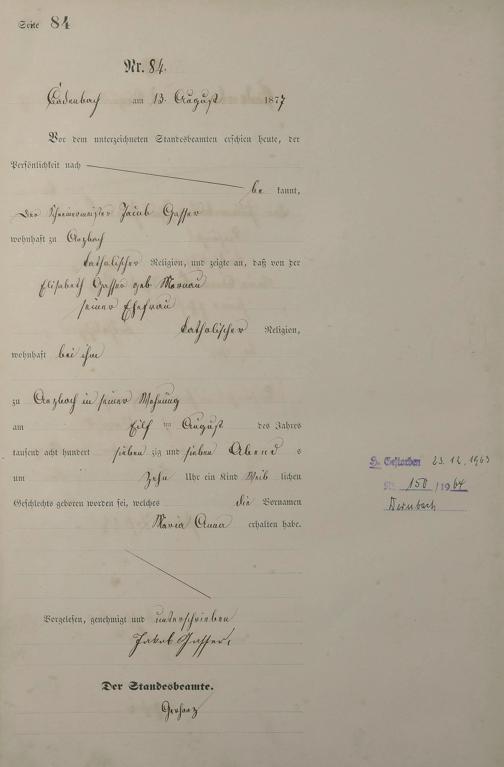 Seite 84
Nr. 84.
Cadenbach am 13. August 1877
Vor dem unterzeichneten Standesbeamten erschien heute, der
Persönlichkeit nach
be kannt,
Der Schreinermeister Jacob Gasser
wohnhaft zu Arzbach
katholischer Religion, und zeigte an, daß von der
Elisabeth Gasser geb
seiner Ehefrau
katholischer Religion,
wohnhaft bei ihm
zu Arzbach in seiner Wohnung
am Eilf ten August des Jahres
tausend acht hundert sieben zig und sieben Abend s
um Zehn Uhr ein Kind Weib lichen
Geschlechts geboren worden sei, welches die Vornamen
Maria Anna erhalten habe.
S. Gestorben 23.12.1963
Nr. 150 / 1964
Dernbach
Vorgelesen, genehmigt und unterschrieben
Jakob Gasser,
Der Standesbeamte.
Gerharz